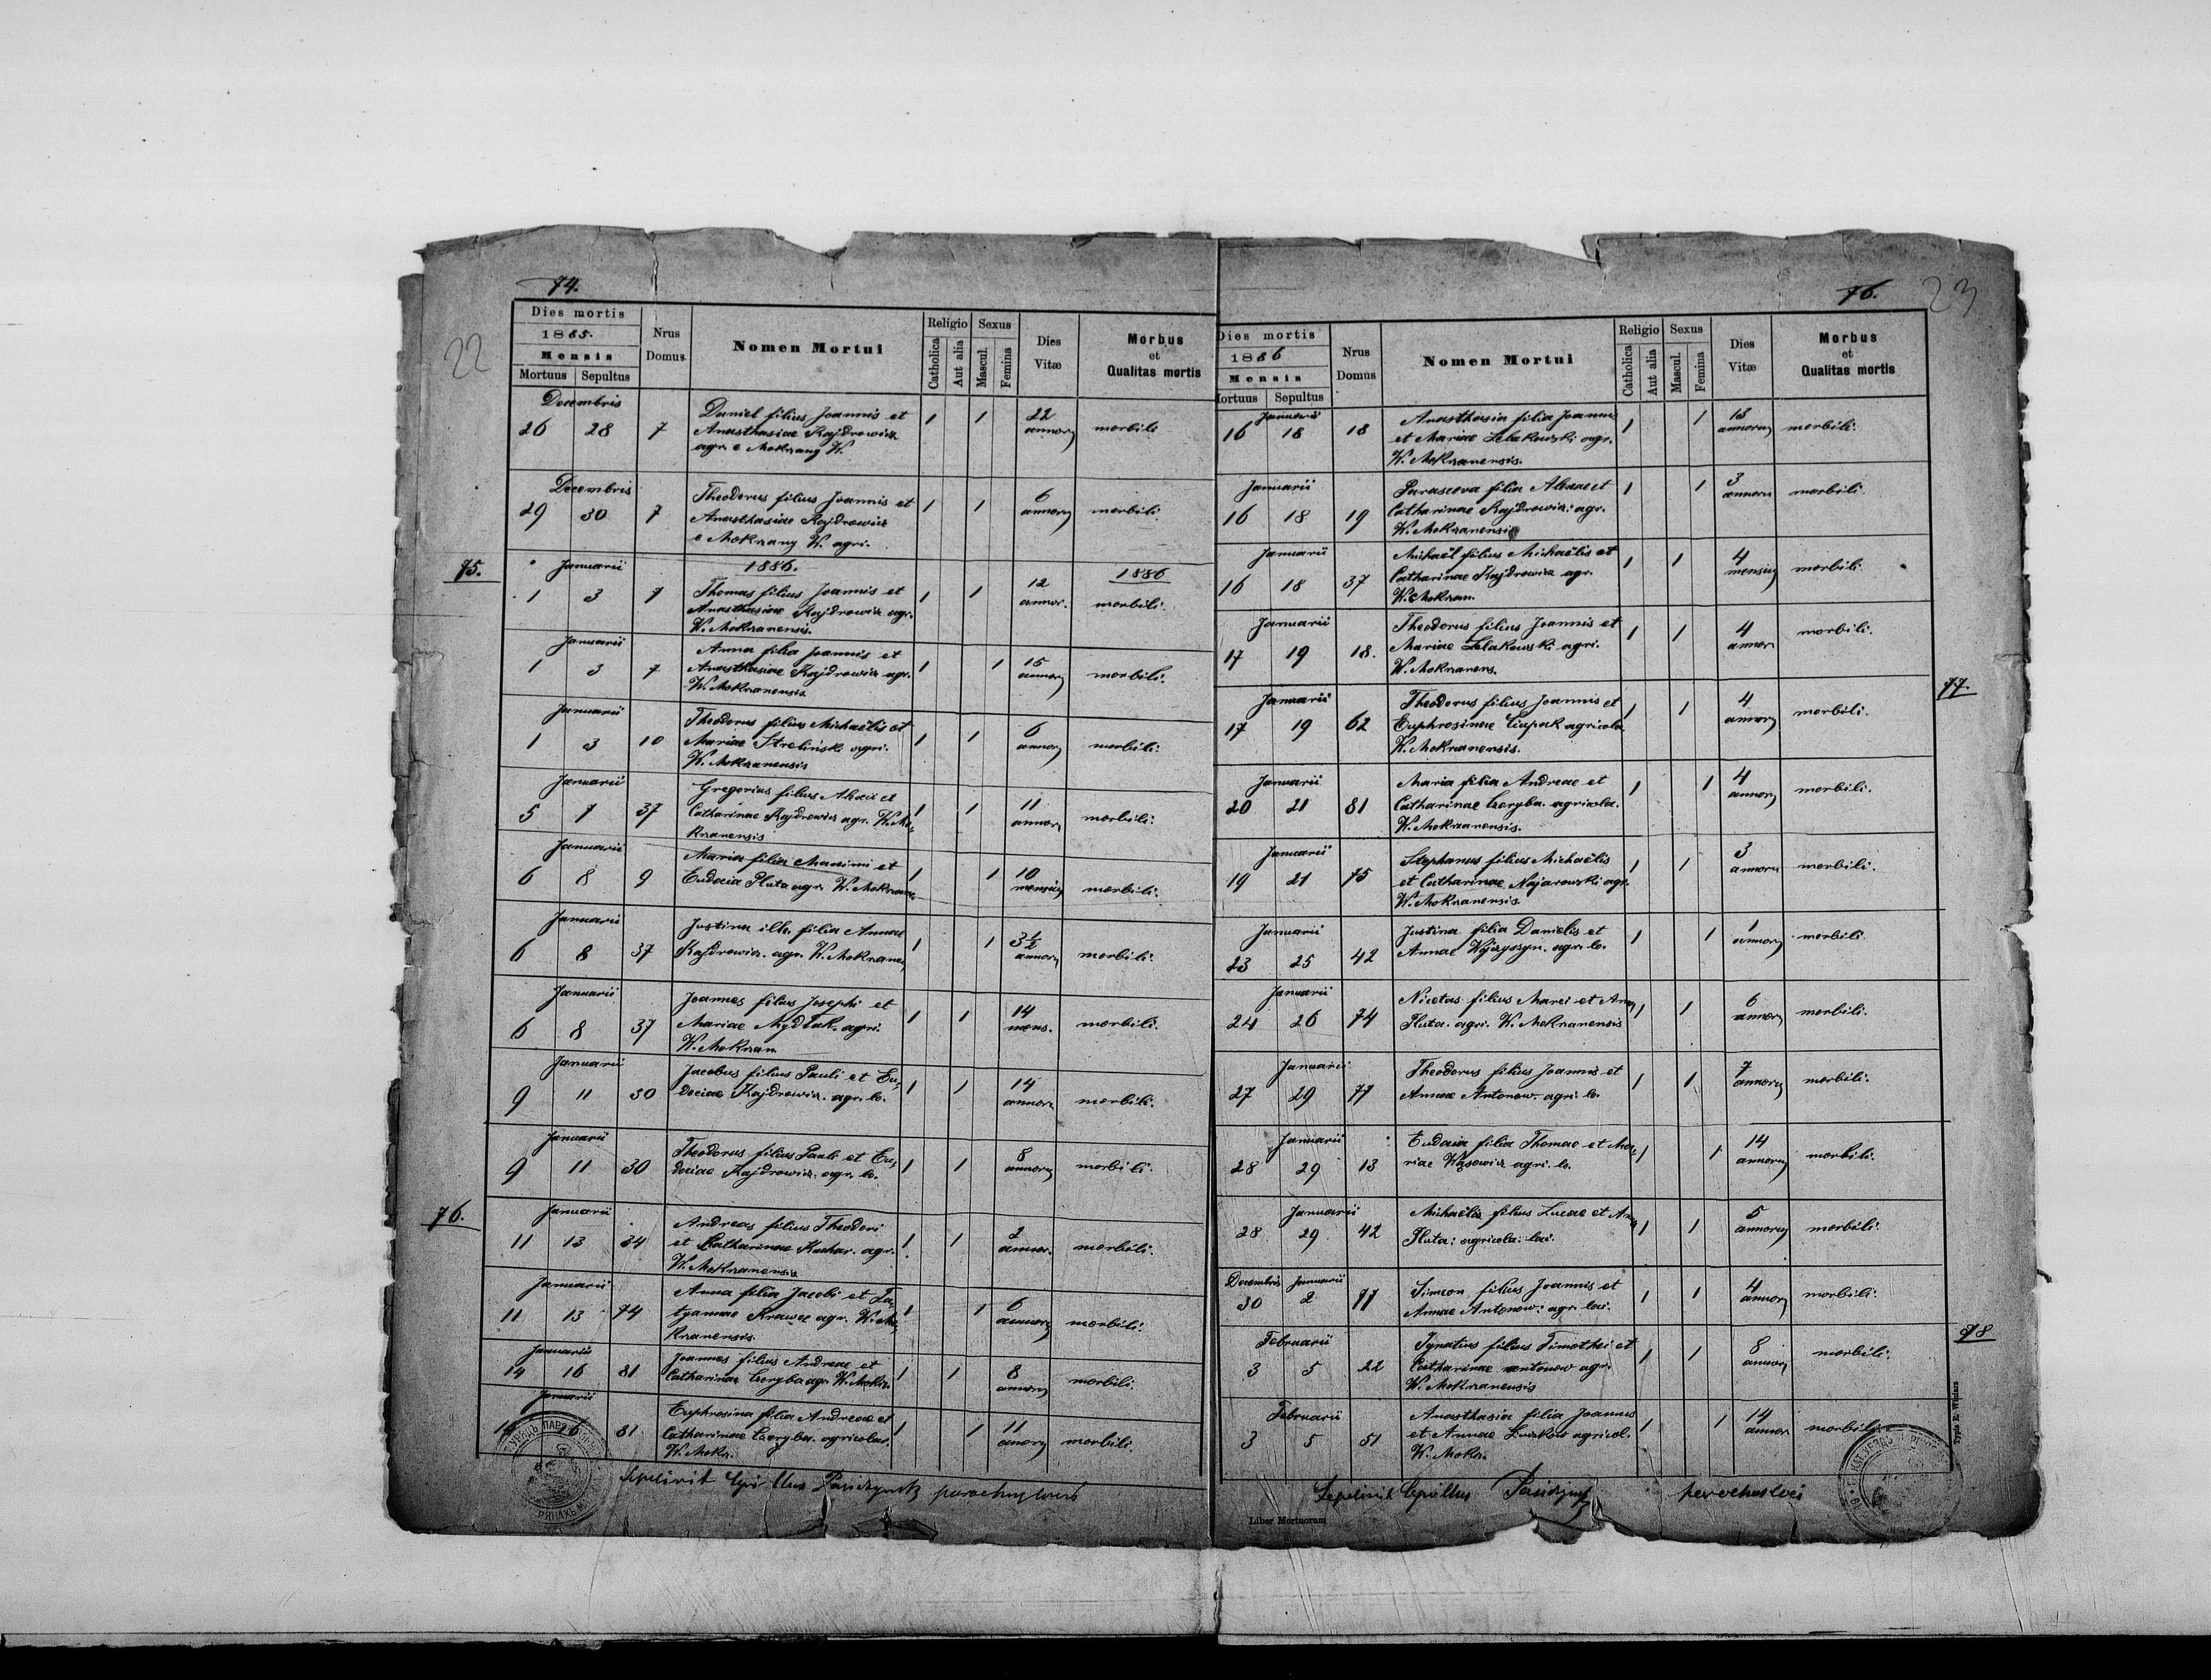 22
74.
Dies mortis
1885.
Mensis
Mortuus Sepultus
Nrus Domus
Nomen Mortui
Religio
Catholica
Aut alia
Sexus
Mascul.
Femina
Dies Vitæ
Morbus
et
Qualitas mortis
Decembris
26 28 7 Daniel filius Joannis et 1 1 22
Anasthasiae Kajdrowicz annor morbili
agr. e Mokrzany W.
Decembris
29 30 7 Theodorus filius Joannis et 1 1 6
Anasthasiae Kajdrowicz annor morbili
e Mokrzany W. agri.
75. Januarii 1886. 1886
1 3 7 Thomas filius Joannis et 1 1 12
Anasthasiae Kajdrowicz agr. annor. morbili.
W. Mokrzanensis.
Januarii
1 3 7 Anna filia Joannis et 1 1 15
Anasthasiae Kajdrowicz agr. annor morbili.
W. Mokrzanensis
Januarii
1 3 10 Theodorus filius Michaëlis et 1 1 6
Mariae Streliński agri. annor morbili.
W. Mokrzanensis
Januarii
5 7 37 Gregorius filius Alexii et 1 1 11
Catharinae Kajdrowicz agr. W. Mo- annor morbili.
krzanensis
Januarii
6 8 9 Maria filia Maximi et 1 1 10
Eudocia Pluta agr. W. Mokrzane, mensiu morbili.
Januarii
6 8 37 Justina ill. filia Annae 1 1 3½
Kajdrowicz. agr. W. Mokrzanen, annor morbili.
Januarii
6 8 37 Joannes filius Josephi et 1 1 14
Mariae Mydłak. agri. mens. morbili.
W. Mokrzan
Januarii
9 11 30 Jacobus filius Pauli et Eu, 1 1 14
dociae Kajdrowicz. agr. lo. annor. morbili.
Januarii
9 11 30 Theodorus filius Pauli et Eu, 1 1 8
dociae Kajdrowicz. agr. lo. annor morbili.
76. Januarii
11 13 34 Andreas filius Theodori 1 1 2
et Catharinae Kuchar. agr. annor. morbili.
W. Mokrzanensis
Januarii
11 13 74 Anna filia Jacobi et Ta, 1 1 6
tyannae Krawec agr. W. Mo, annor morbili.
krzanensis.
Januarii
14 16 81 Joannes filius Andreae et 1 1 8
Catharinae Czeryba agr. W. Mokrz. annor morbili.
Januarii
16 81 Euphrosina filia Andreae et 1 1 11
Catharinae Czeryba. agricolar. anory morbili.
W. Mokrz.
Sepelivit parochus
23
76.
Dies mortis
1886
Mensis
Mortuus Sepultus
Nrus Domus
Nomen Mortui
Religio
Catholica
Aut alia
Sexus
Mascul.
Femina
Dies Vitæ
Morbus
et
Qualitas mortis
Januarii
16 18 18 Anasthasia filia Joannis 1 1 18
et Mariae Lelakowski agr. annorum morbili.
W. Mokrzanensis.
Januarii
16 18 19 Parasceva filia Alexae et 1 1 3
Catharinae Kajdrowicz: agr. annoru morbili.
W. Mokrzanensis
Januarii
16 18 37 Michaël filius Michaëlis et 1 1 4
Catharinae Kajdrowicz agr. mensiu morbili.
W. Mokrzan.
Januarii
17 19 18. Theodorus filius Joannis et 1 1 4
Mariae Lelakowski agri. annor morbili.
W. Mokrzanens.
77.
Januarii
17 19 62 Theodorus filius Joannis et 1 1 4
Euphrosinae Ciupak agricola annor morbili.
W. Mokrzanensis.
Januarii
20 21 81 Maria filia Andreae et 1 1 4
Catharinae Czeryba. agricolar. annor morbili.
W. Mokrzanensis.
Januarii
19 21 75 Stephanus filius Michaëlis 1 1 3
et Catharinae Najarowski agr. annoru morbili.
W. Mokrzanensis
Januarii
23 25 42 Justina filia Danielis et 1 1 1
Annae agr. lo. annor morbili.
Januarii
24 26 74 Nicetas filius Marci et Ann, 1 1 6
Pluta. agri. W. Mokrzanensis annor morbili.
Januarii
27 29 77 Theodorus filius Joannis et 1 1 7
Annae Antonow. agri. lo. annoru morbili.
Januarii
28 29 13 Eudocia filia Thomae et Ma, 1 1 14
riae Wąsowicz agri. lo. annoru morbili.
Januarii
28 29 42 Michaëlis filius Lucae et Ann 1 1 5
Pluta: agricola. loci. annoru morbili.
Decembris Januarii
30 2 77 Simeon filius Joannis et 1 1 4
Annae Antonow: agr. loci. annor morbili.
78
Februarii
3 5 22 Ignatius filius Timothei et 1 1 8
Catharinae Antonow agr. annor morbili.
W. Mokrzanensis
Februarii
3 5 51 Anasthasia filia Joannis 1 1 14
et Annae agricol. annor morbili
W. Mokrz.
Sepelivit Cyrillus parochus loci
Liber Mortuorum
Typis E. Winiarz